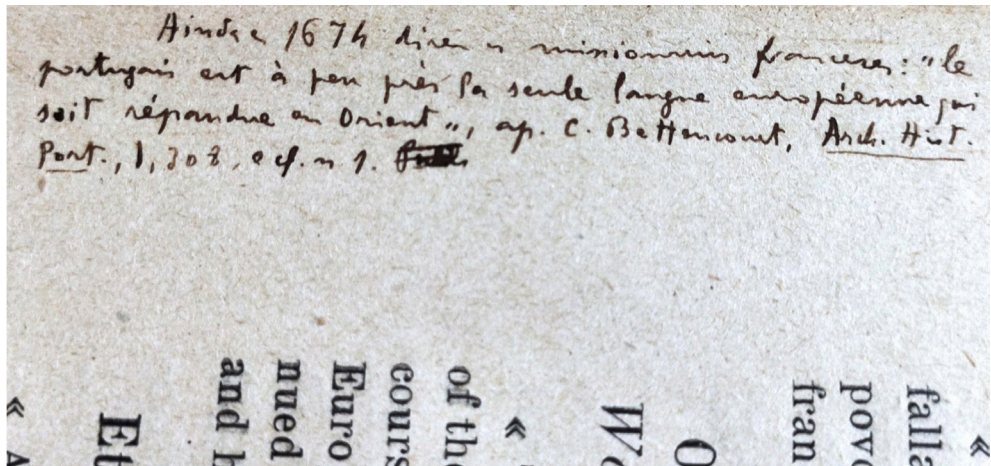 Ainda em 1674 dizem os missionarios franceses: "le
portugais est à peu près la seule langue européenne qui
soit répandue en Orient", ap. C. Bettencourt, Arch. Hist.
Port., I, 308, e cf. n 1.
falla
povo
fran
O
Wo
«
of the
cours
Euro
nued
and h
Et
«
«